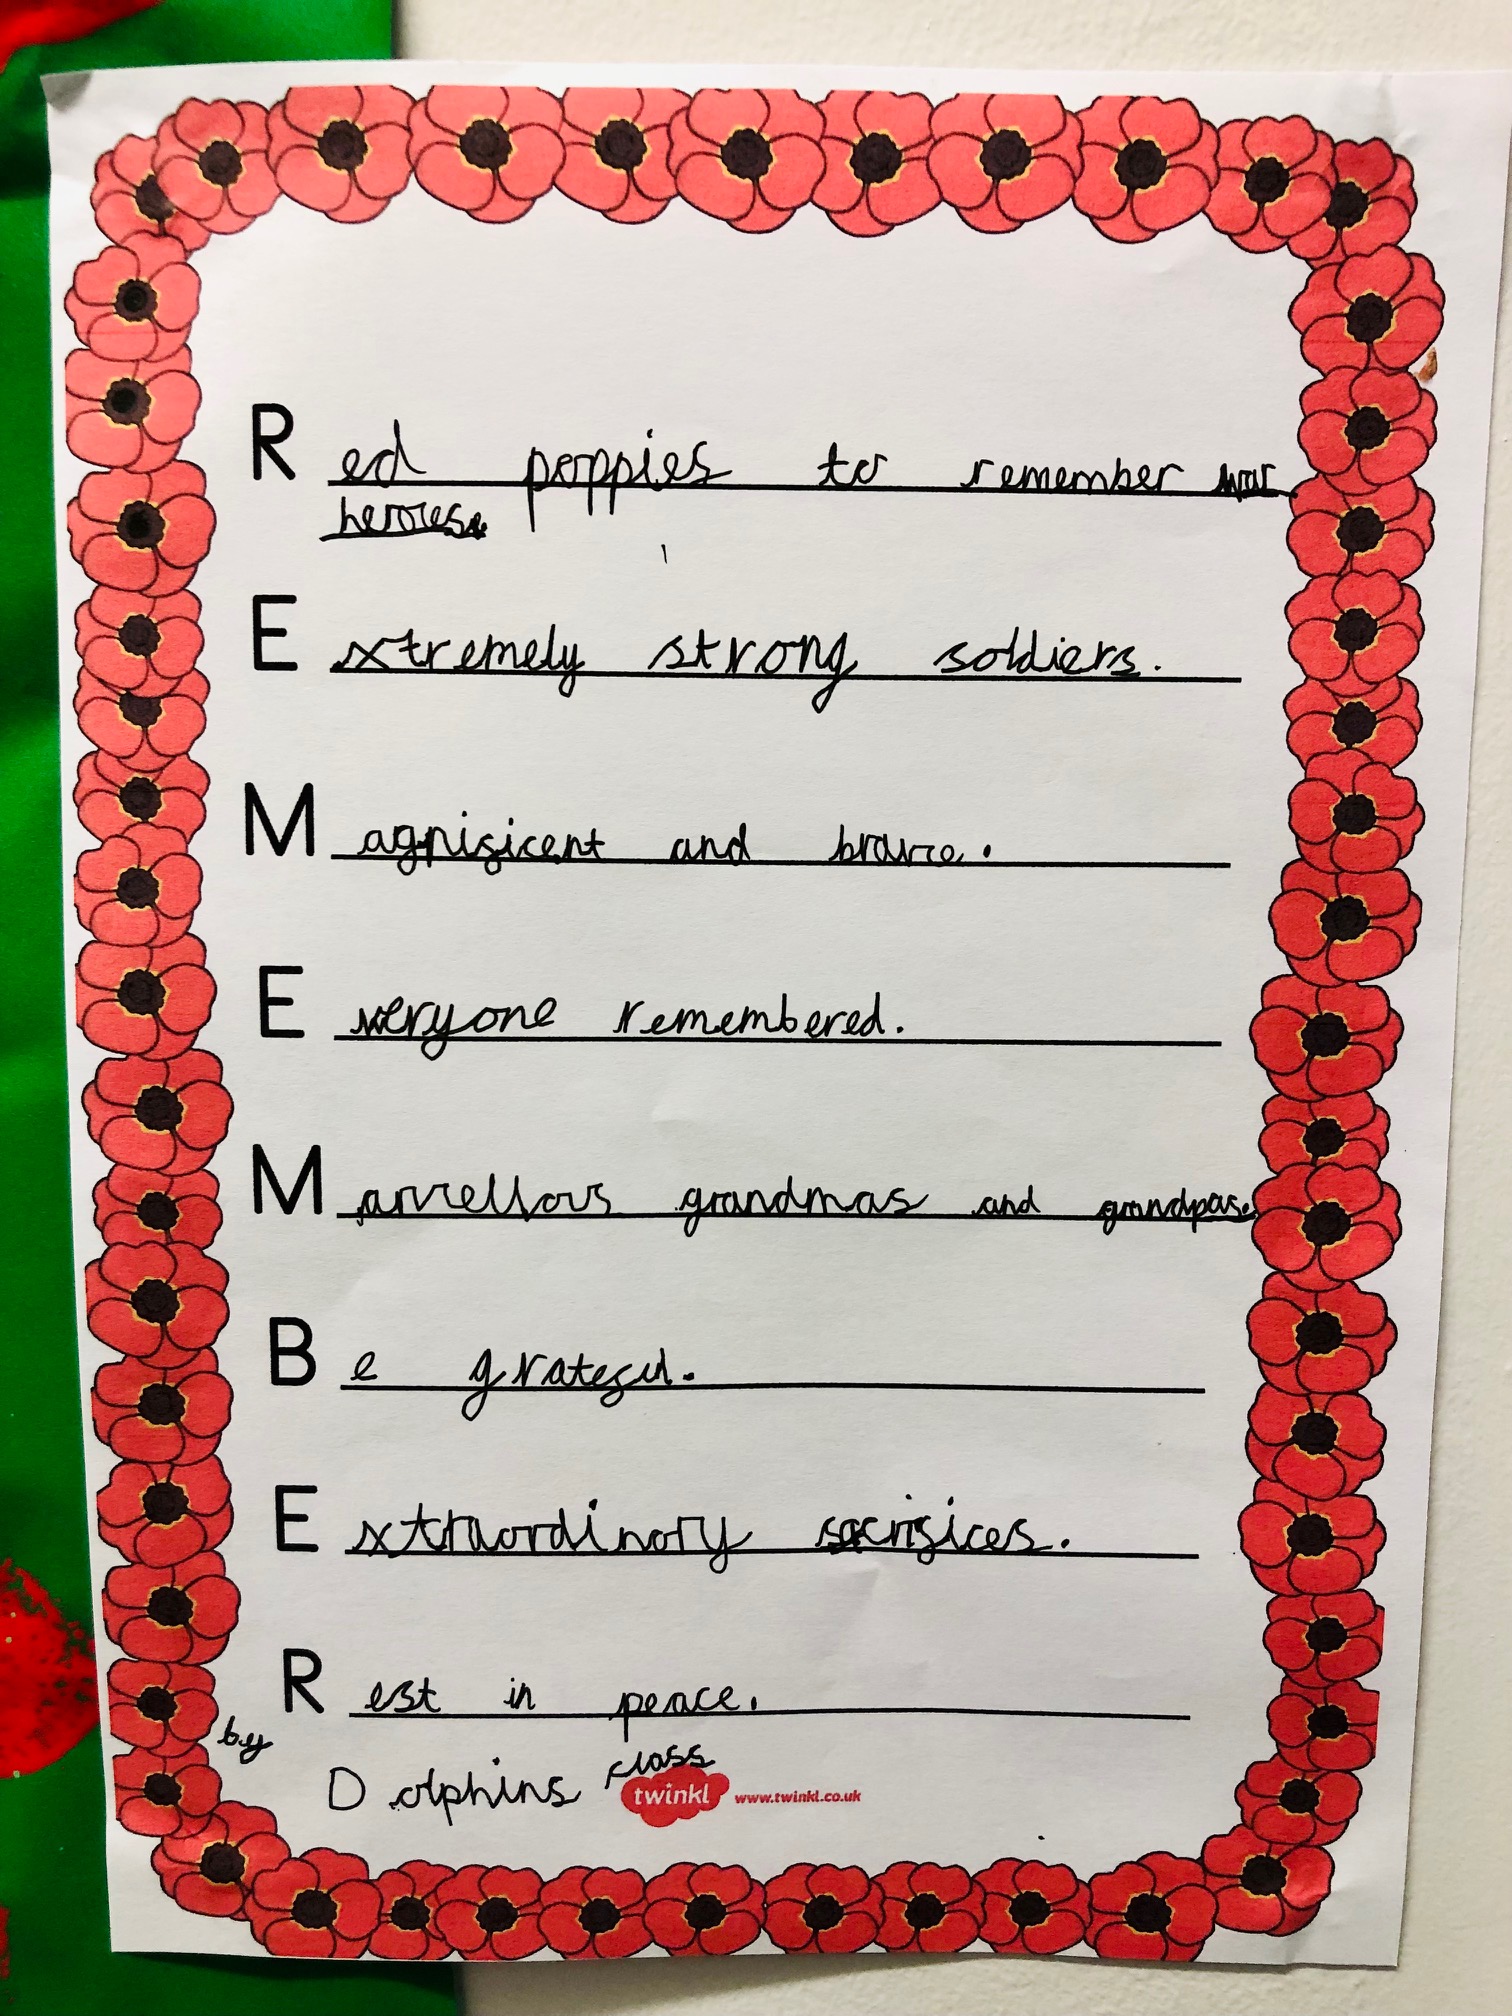 Red poppies to remember war
heroes.
Extremely strong soldiers.
Magnificent and brave.
Everyone remembered.
Marvellous grandmas and grandpas.
Be grateful.
Extraordinary sacrifices.
Rest in peace.
by
Dolphins class
twinkl www.twinkl.co.uk